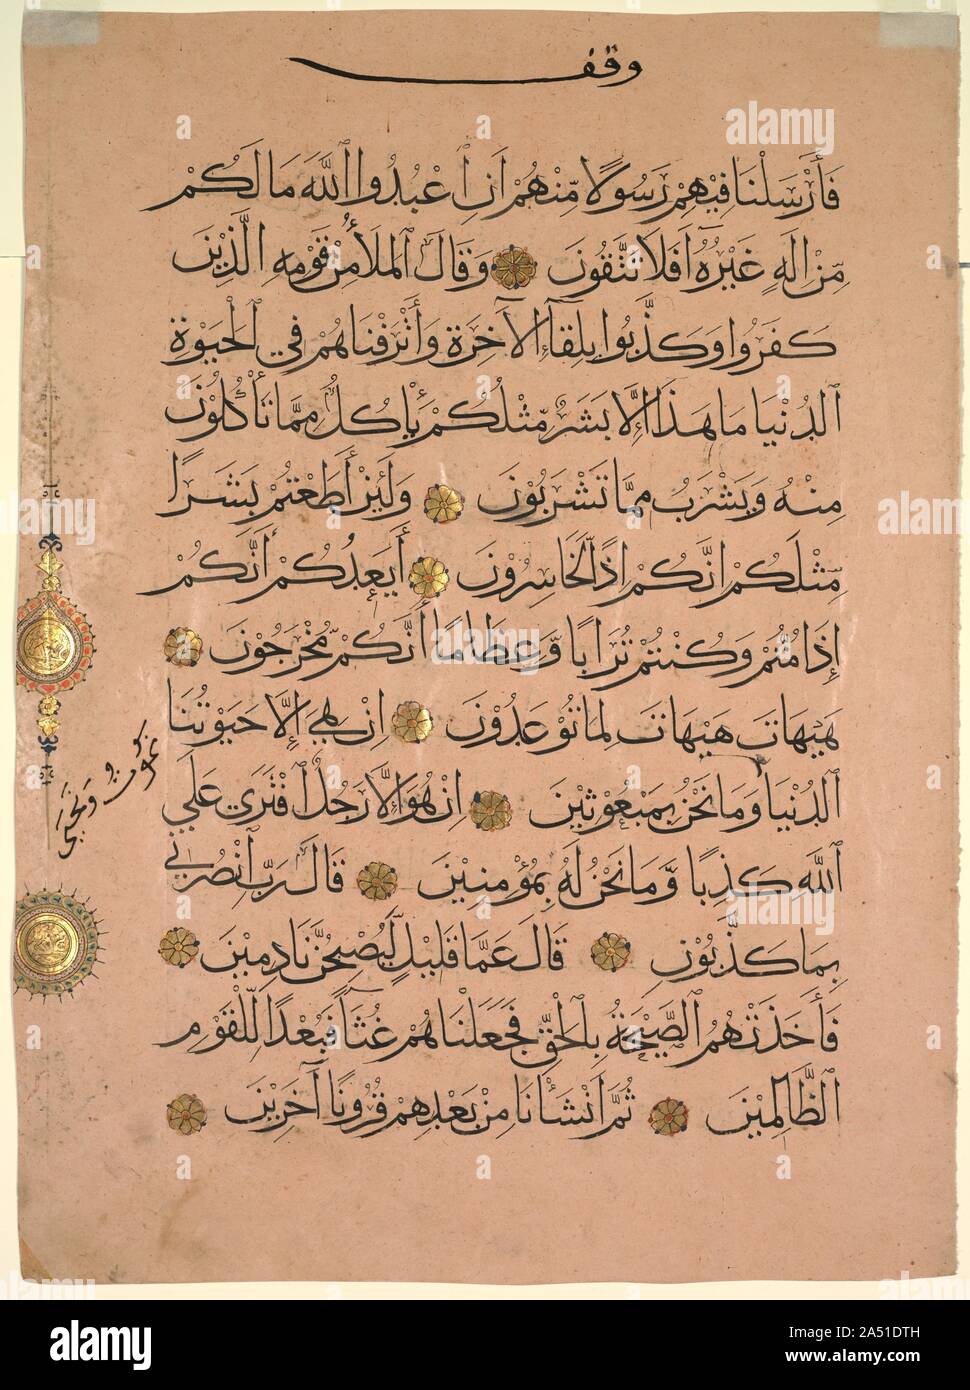 وقف
فَأَرْسَلْنَا فِيهِمْ رَسُولًا مِّنْهُمْ أَنِ ٱعْبُدُوا ٱللَّهَ مَا لَكُمْ
مِّنْ إِلَهٍ غَيْرُهُ أَفَلَا تَتَّقُونَ وَقَالَ ٱلْمَلَأُ مِنْ قَوْمِهِ الَّذِينَ
كَفَرُوا وَكَذَّبُوا بِلِقَآءِ ٱلْآخِرَةِ وَأَتْرَفْنَاهُمْ فِي ٱلْحَيَوٰةِ
ٱلدُّنْيَا مَا هَذَا إِلَّا بَشَرٌ مِّثْلُكُمْ يَأْكُلُ مِمَّا تَأْكُلُونَ
مِنْهُ وَيَشْرَبُ مِمَّا تَشْرَبُونَ وَلَئِنْ أَطَعْتُمْ بَشَرًا
مِّثْلَكُمْ إِنَّكُمْ إِذًا لَّخَاسِرُونَ أَيَعِدُكُمْ أَنَّكُمْ
إِذَا مُتُّمْ وَكُنْتُمْ تُرَابًا وَّعِظَامًا أَنَّكُمْ مُّخْرَجُونَ
هَيْهَاتَ هَيْهَاتَ لِمَا تُوعَدُونَ إِنْ هِيَ إِلَّا حَيَوٰتُنَا
ٱلدُّنْيَا وَمَا نَحْنُ بِمَبْعُوثِينَ إِنْ هُوَ إِلَّا رَجُلٌ ٱفْتَرَى عَلَى
ٱللَّهِ كَذِبًا وَّمَا نَحْنُ لَهُ بِمُؤْمِنِينَ قَالَ رَبِّ ٱنْصُرْنِي
بِمَا كَذَّبُونِ قَالَ عَمَّا قَلِيلٍ لَّيُصْبِحُنَّ نَادِمِينَ
فَأَخَذَتْهُمُ ٱلصَّيْحَةُ بِٱلْحَقِّ فَجَعَلْنَاهُمْ غُثَآءً فَبُعْدًا لِّلْقَوْمِ
ٱلظَّالِمِينَ ثُمَّ أَنْشَأْنَا مِنْ بَعْدِهِمْ قُرُونًا آخَرِينَ
نموت و ونحيى
alamy
Image ID: 2A51DTH
www.alamy.com